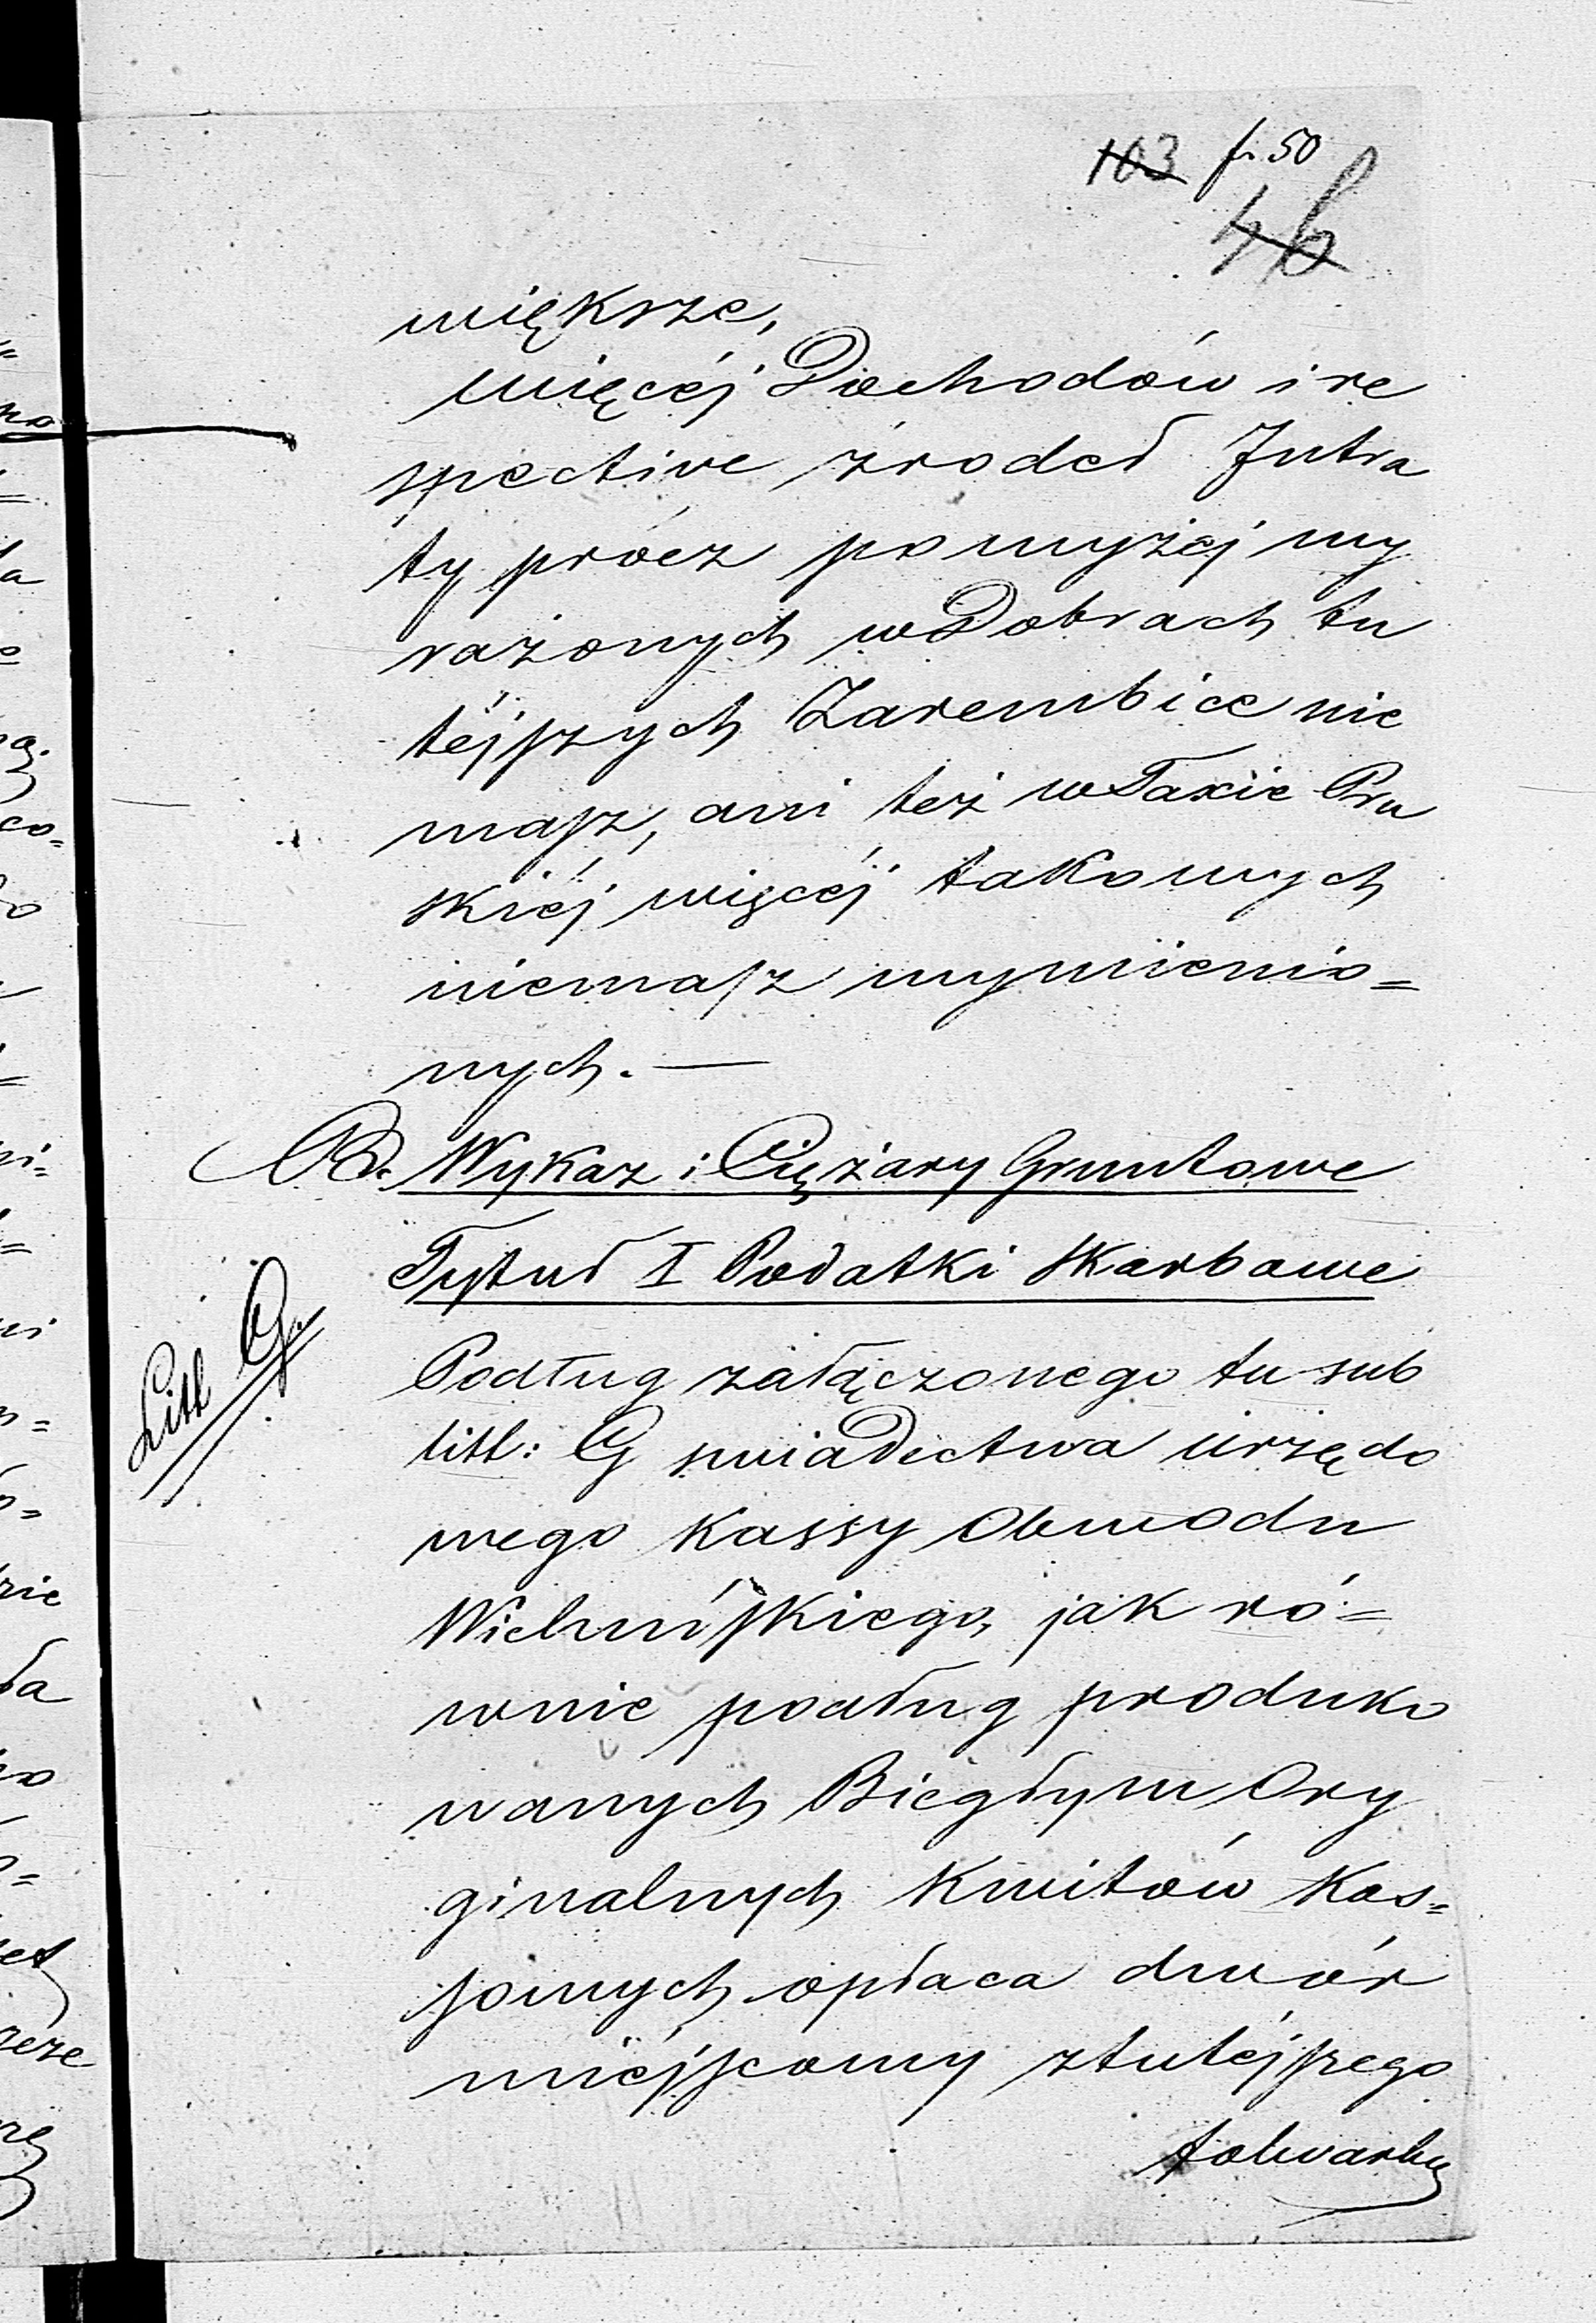 103 f. 50
46
większe,
więcéj Dochodów i re
spective źrodeł Intra
ty prócz powyżéj wy
rażonych w Dobrach tu
téjszych Zarembice nie
masz, ani też w Taxie Pru
skiéj więcéj takowych
niemasz wymienio=
nych. —
B. Wykaz i Ciężary Gruntowe
Tytuł I Podatki Skarbowe
Litt G.
Podług załączonego tu sub
litt: G swiadectwa urzędo
wego Kassy Obwodu
Wieluńskiego, jak ró=
wnie podług produko
wanych Biegłym Ory
ginalnych Kwitów Kas=
sowych opłaca dwór
miéjscowy z tutéjszego
folwarku